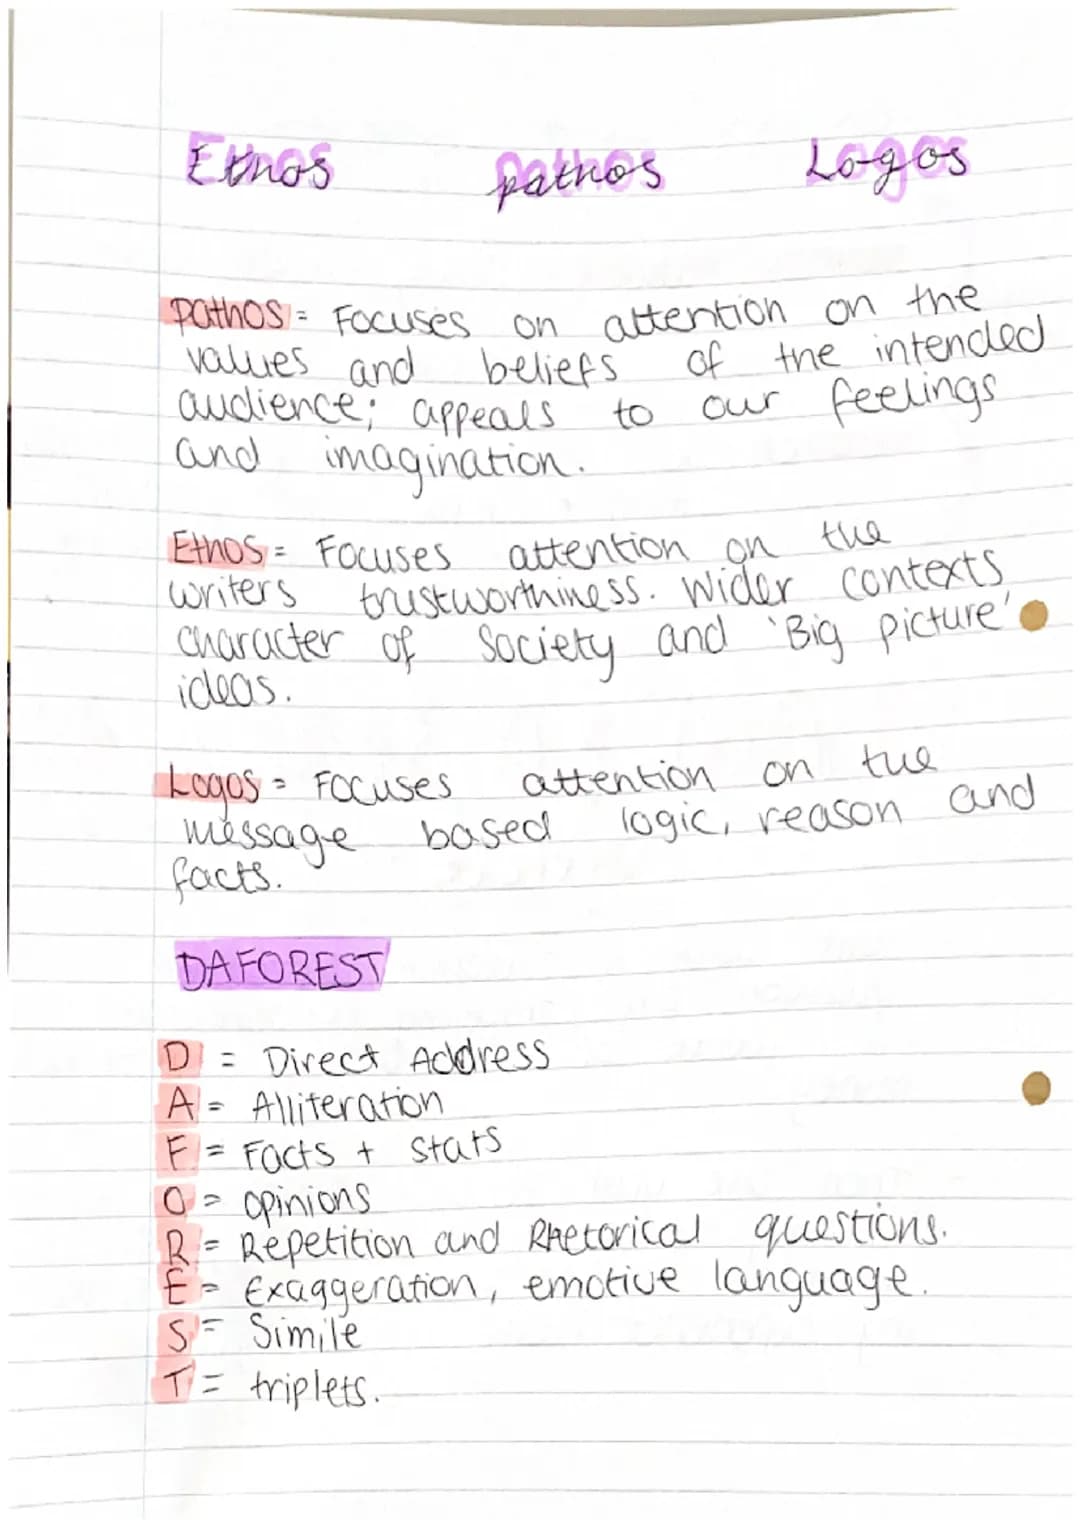 Ethos pathos Logos
Pathos = Focuses on attention on the
values and beliefs of the intended
audience; appeals to our feelings
and imagination.
Ethos = Focuses attention on the
writers trustworthiness. Wider contexts
character of society and 'Big picture'
ideas.
Logos = Focuses attention on the
message based logic, reason and
facts.
DAFOREST
D = Direct Address
A = Alliteration
F = Facts + stats
O = opinions
R = Repetition and Rhetorical questions.
E = Exaggeration, emotive language.
S = Simile
T = triplets.